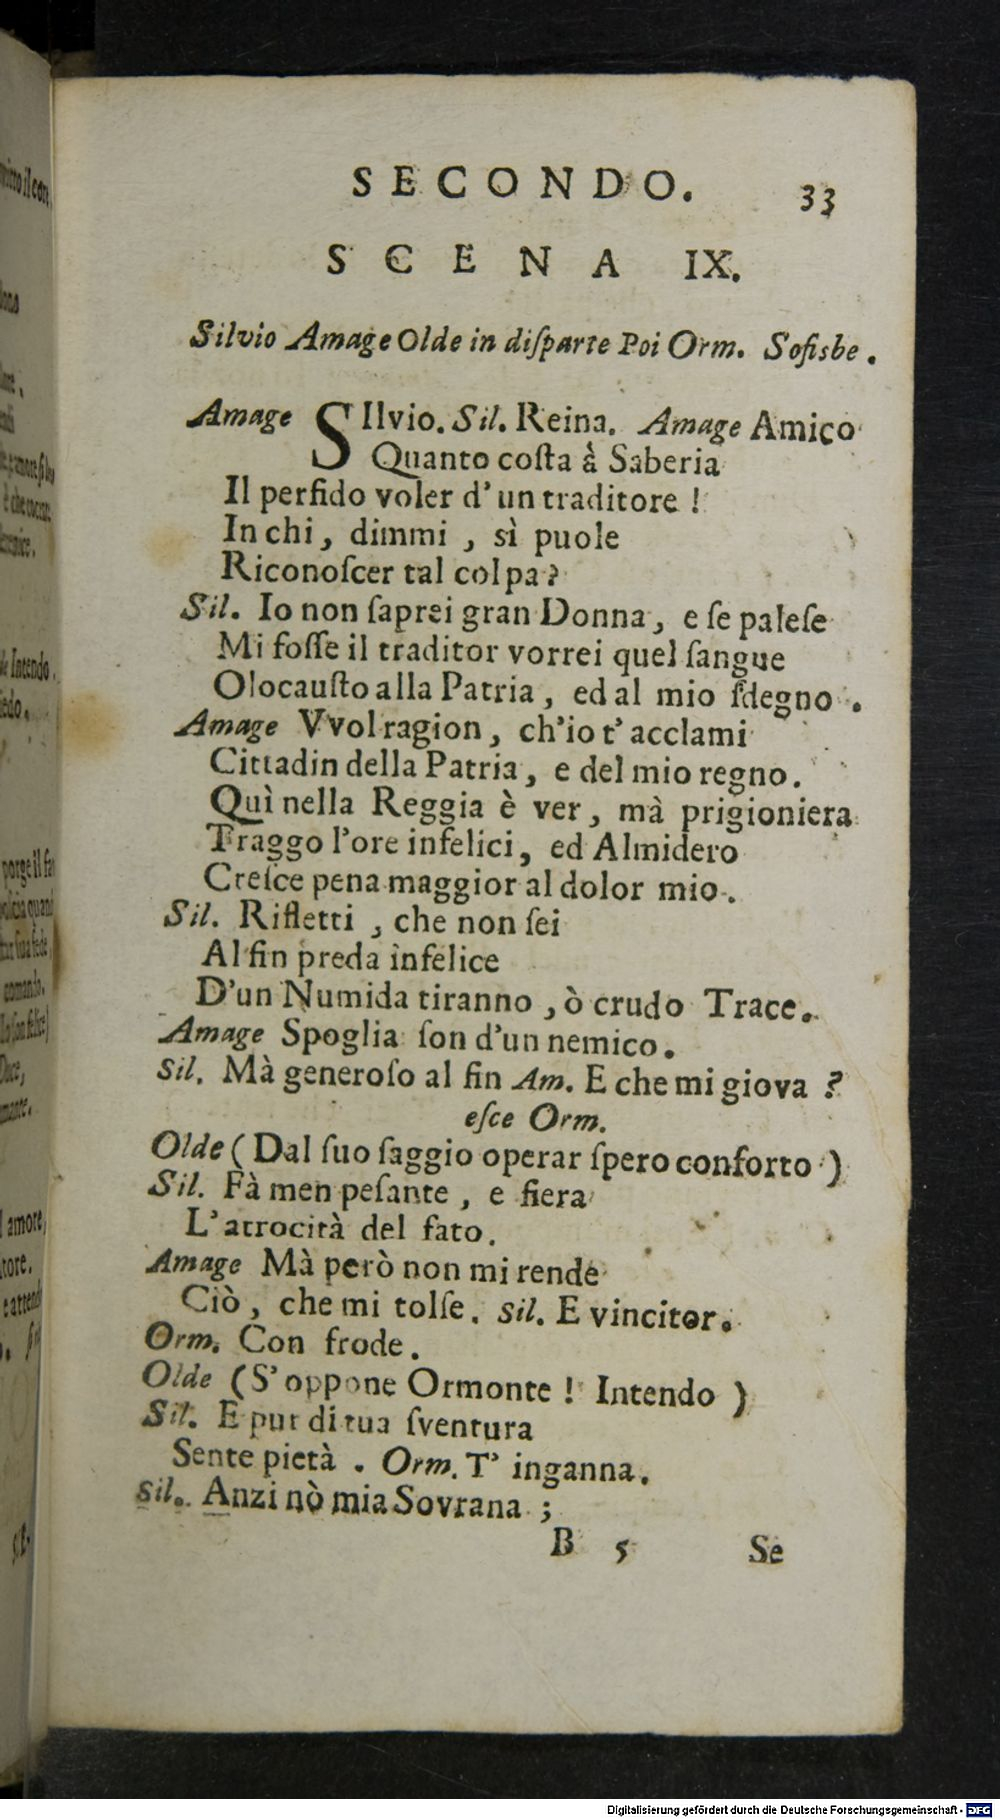 SECONDO. 33
SCENA IX.
Silvio Amage Olde in diſparte Poi Orm. Sofisbe.
Amage SIlvio. Sil. Reina. Amage Amico
Quanto coſta à Saberia
Il perfido voler d'un traditore !
In chi, dimmi, sì puole
Riconoſcer tal colpa?
Sil. Io non ſaprei gran Donna, e ſe paleſe
Mi foſſe il traditor vorrei quel ſangue
Olocauſto alla Patria, ed al mio ſdegno.
Amage Vvol ragion, ch'io t'acclami
Cittadin della Patria, e del mio regno.
Quì nella Reggia è ver, mà prigioniera
Traggo l'ore infelici, ed Almidero
Creſce pena maggior al dolor mio.
Sil. Rifletti, che non ſei
Al fin preda infelice
D'un Numida tiranno, ò crudo Trace.
Amage Spoglia ſon d'un nemico.
Sil. Mà generoſo al fin Am. E che mi giova ?
eſce Orm.
Olde (Dal ſuo ſaggio operar ſpero conforto)
Sil. Fà men peſante, e fiera
L'atrocità del fato.
Amage Mà però non mi rende
Ciò, che mi tolſe. Sil. E vincitor.
Orm. Con frode.
Olde (S'oppone Ormonte ! Intendo)
Sil. E pur di tua ſventura
Sente pietà. Orm. T'inganna.
Sil. Anzi nò mia Sovrana;
B 5 Se
Digitalisierung gefördert durch die Deutsche Forschungsgemeinschaft - DFG